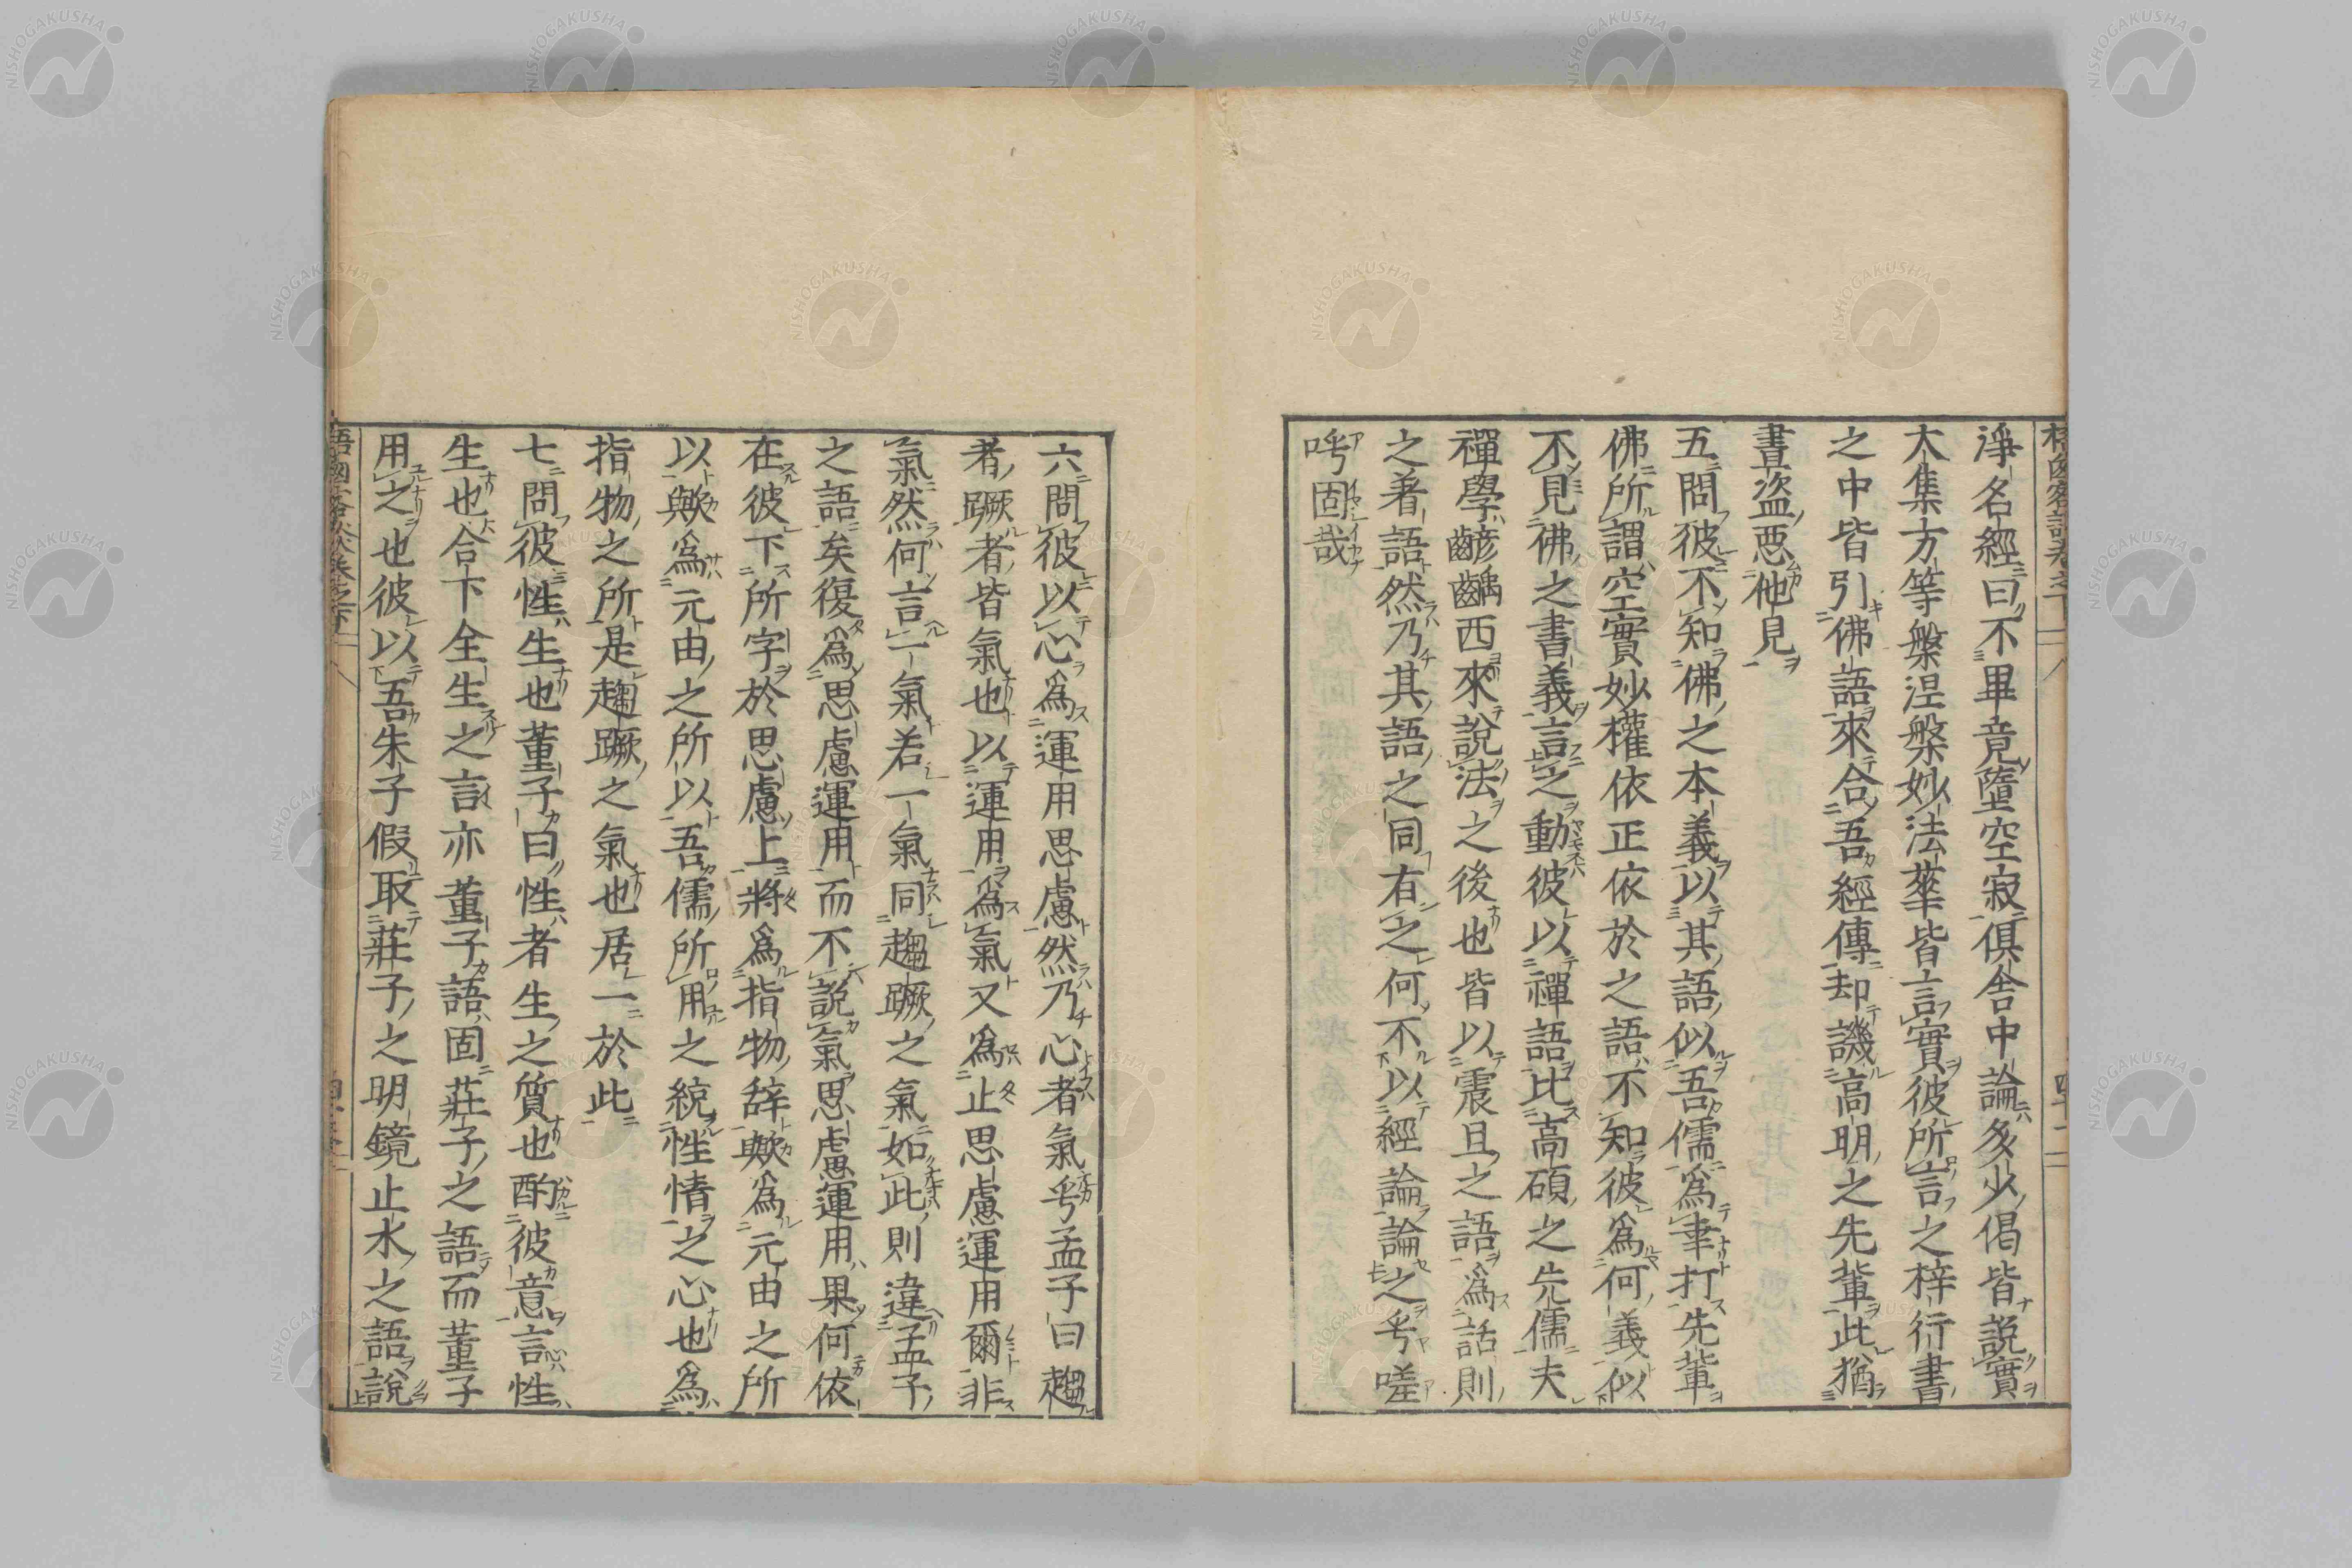 淨名經曰不畢竟墮空寂俱舍中論多少偈皆說實
大集方等槃涅槃妙法華皆言實彼所言之梓行書
之中皆引佛語來合吾經傳却譏高明之先輩此猶
晝盜惡他見
五問彼不知佛之本義以其語似吾儒為聿打先輩
佛所謂空實妙權依正依於之語不知彼為何義似
不見佛之書義言之動彼以禪語比高碩之先儒夫
禪學齴齲西來說法之後也皆以震旦之語為話則
之著語然乃其語之同有之何不以經論論之乎嗟
呼固哉
六問彼以心為運用思慮然乃心者氣乎孟子曰趨
者蹶者皆氣也以運用為氣又為止思慮運用爾非
氣然何言一氣若一氣同趨蹶之氣如此則違孟子
之語矣復為思慮運用而不說氣思慮運用果何依
在彼下所字於思慮上將為指物辞歟為元由之所
以歟為元由之所以吾儒所用之統性情之心也為
指物之所是趨蹶之氣也居一於此
七問彼性生也董子曰性者生之質也酌彼意言性
生也合下全生之言亦董子語固莊子之語而董子
用之也彼以吾朱子假取莊子之明鏡止水之語說
NISHOGAKUSHA